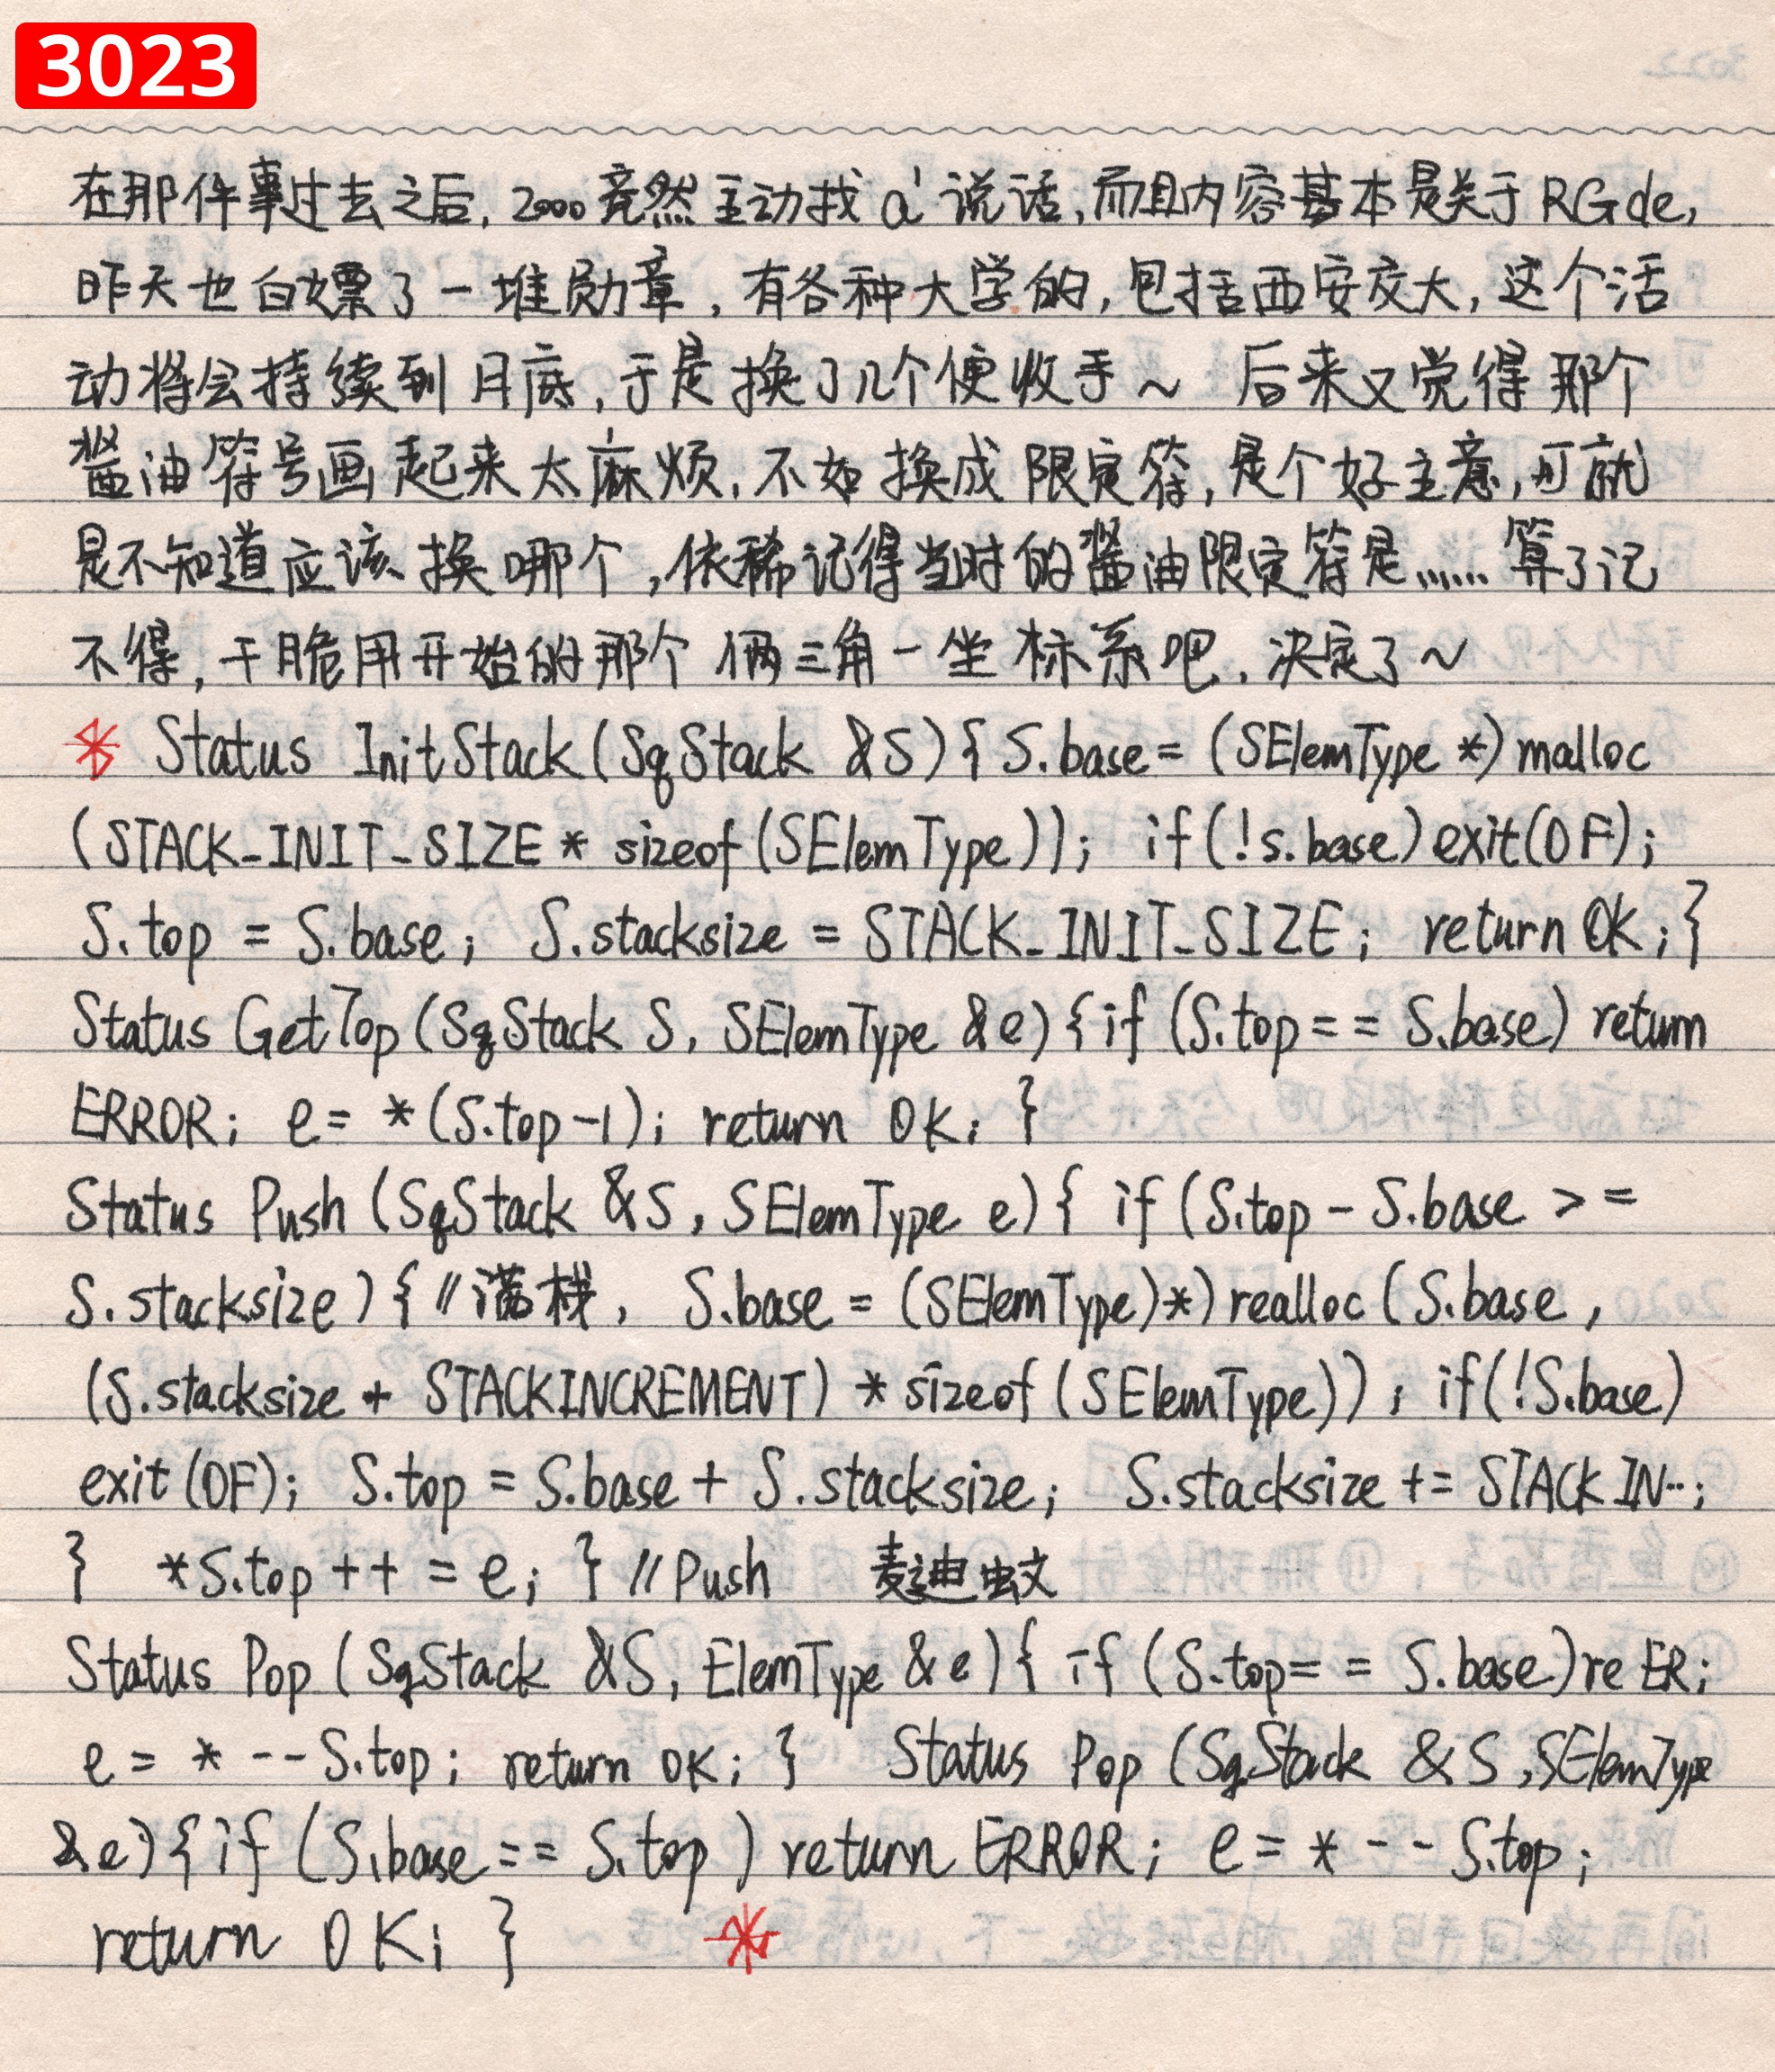 3023
在那件事过去之后, 2000竟然主动找a'说话,而且内容基本是关于RGde,
昨天也白嫖了一堆勋章,有各种大学的,包括西安交大,这个活
动将会持续到月底,于是换了几个便收手~ 后来又觉得那个
酱油符号画起来太麻烦,不如换成限定符,是个好主意,可就
是不知道应该换哪个,依稀记得当时的酱油限定符是……算了记
不得,干脆用开始的那个俩三角一坐标系吧,决定了~
* Status InitStack(SqStack &S){S.base=(SElemType *)malloc
(STACK_INIT_SIZE * sizeof(SElemType)); if(!s.base)exit(OF);
S.top = S.base; S.stacksize = STACK_INIT_SIZE; return OK;}
Status GetTop(SqStack S, SElemType &e){if (S.top== S.base) return
ERROR; e= *(S.top-1); return OK; }
Status Push (SqStack &S, SElemType e){ if (S.top - S.base >=
S.stacksize){//满栈, S.base = (SElemType)*)realloc(S.base,
(S.stacksize + STACKINCREMENT) * sizeof(SElemType)); if(!S.base)
exit(OF); S.top = S.base + S.stacksize; S.stacksize += STACKIN…;
} *S.top++ = e; } //Push 麦迪蚊
Status Pop (SqStack &S, ElemType &e){ if (S.top== S.base)re ER;
e = * --S.top; return OK; } Status Pop (SqStack &S,SElemType
&e){if (S.base== S.top) return ERROR; e= * --S.top;
return OK; } *